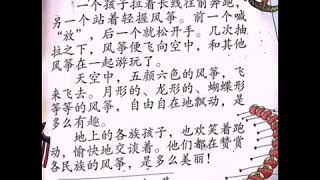 一个孩子拉着长线往前奔跑，
另一个站着轻握风筝。前一个喊
“放”，后一个就松开手。几次抽
拉之下，风筝便飞向空中，和其他
风筝在一起游玩了。
天空中，五颜六色的风筝，飞
来飞去。月形的、龙形的、蝴蝶形
等等的风筝，自由自在地飘动，是
多么有趣。
地上的各族孩子，也欢笑着跑
动，愉快地交谈着。他们都在赞赏
各民族的风筝，是多么美丽！